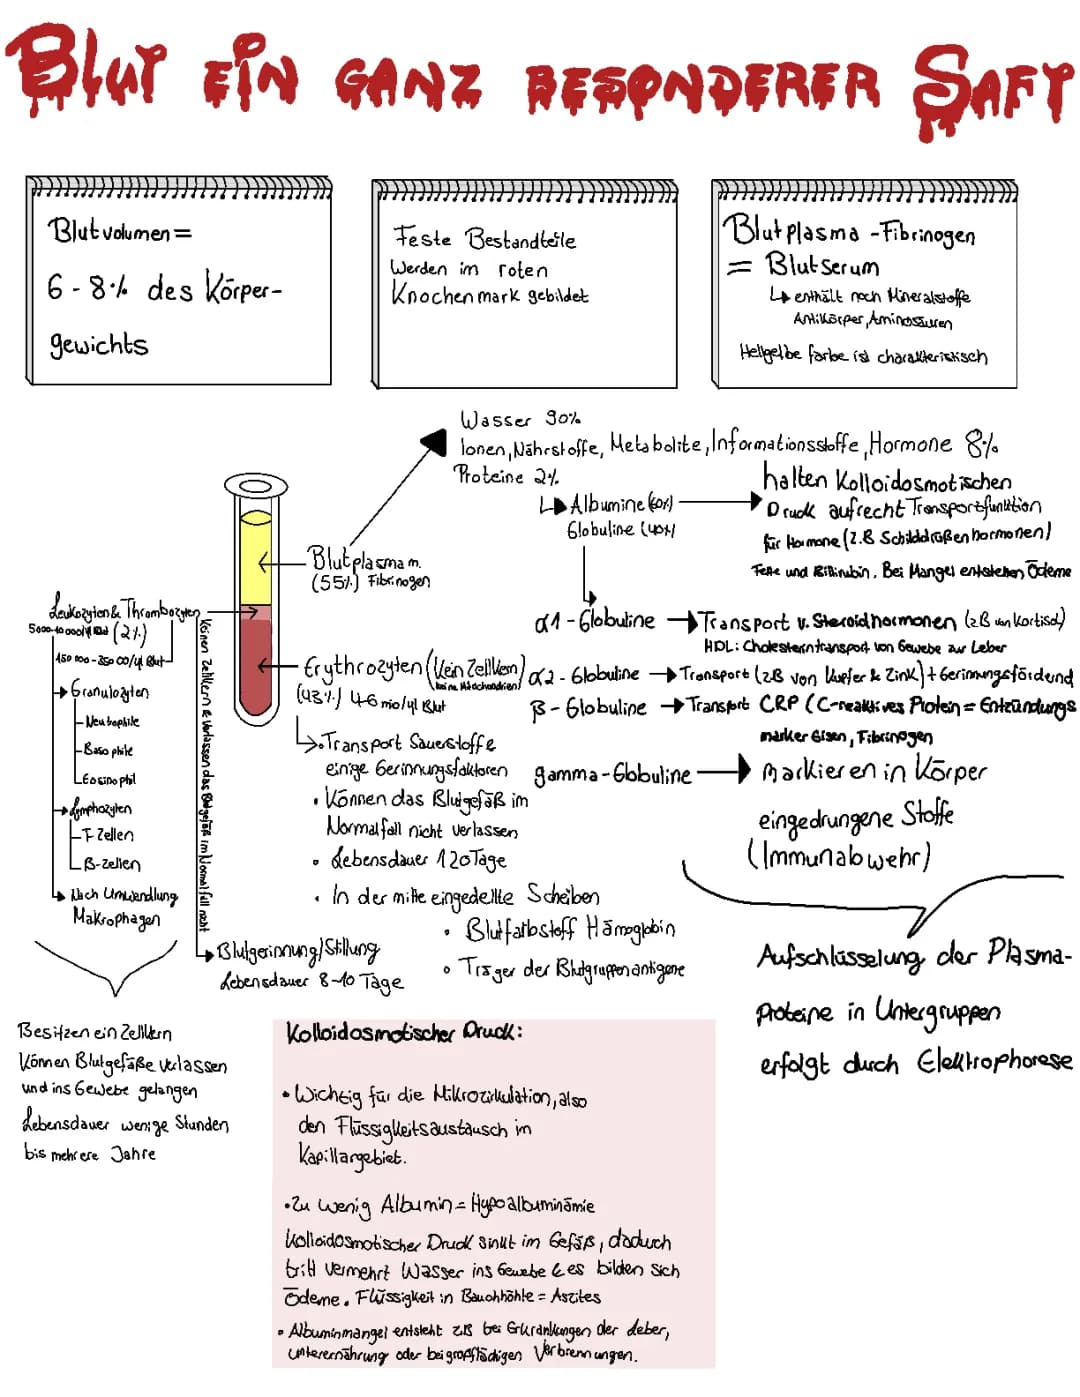 BLUT EIN GANZ BESONDERER SAFT
Blutvolumen =
6-8% des Körper-
gewichts
Feste Bestandteile
Werden im roten
Knochenmark gebildet
Blutplasma - Fibrinogen
= Blutserum
↳ enthält noch Mineralstoffe
Antikörper, Aminosäuren
Hellgelbe farbe ist charakteristisch
Wasser 90%
Ionen, Nährstoffe, Metabolite, Informationsstoffe, Hormone 8%
Proteine 2%
↳ Albumine (60%)
Globuline (40%)
halten Kolloidosmotischen
Druck aufrecht Transportfunktion
für Hormone (z.B Schilddrüßenhormonen)
Fette und Bilirubin. Bei Mangel entstehen Ödeme
α1-Globuline → Transport v. Steroidhormonen (z.B von Kortisol)
HDL: Cholesterintransport von Gewebe zur Leber
α2-Globuline → Transport (z.B von Kupfer & Zink) + Gerinnungsfördernd
β-Globuline → Transport CRP (C-reaktives Protein = Entzündungs
marker Eisen, Fibrinogen
gamma-Globuline → markieren in Körper
eingedrungene Stoffe
(Immunabwehr)
Aufschlüsselung der Plasma-
Proteine in Untergruppen
erfolgt durch Elektrophorese
Blutplasma m.
(55%) Fibrinogen
Erythrozyten (Kein Zellkern)
keine Mitochondrien
(43%) 4-6 mio/µl Blut
↳ • Transport Sauerstoffe
einige Gerinnungsfaktoren
• Können das Blutgefäß im
Normalfall nicht verlassen
• Lebensdauer 120 Tage
• In der mitte eingedellte Scheiben
• Blutfarbstoff Hämoglobin
• Träger der Blutgruppenantigene
Leukozyten & Thrombozyten
5000-10 000/µl Blut (2%)
150 000-350 00/µl Blut
Keinen Zellkern & Verlassen das Blutgefäß im Normalfall nicht
Granulozyten
Neutrophile
Basophile
Eosinophil
Lymphozyten
T-Zellen
B-zellen
Nach Umwandlung
Makrophagen
Blutgerinnung/Stillung
Lebensdauer 8-10 Tage
Besitzen ein Zellkern
Können Blutgefäße verlassen
und ins Gewebe gelangen
Lebensdauer wenige Stunden
bis mehrere Jahre
Kolloidosmotischer Druck:
• Wichtig für die Mikrozirkulation, also
den Flüssigkeitsaustausch im
Kapillargebiet.
• Zu wenig Albumin = Hypoalbuminämie
Kolloidosmotischer Druck sinkt im Gefäß, dadurch
tritt vermehrt Wasser ins Gewebe & es bilden sich
Ödeme. Flüssigkeit in Bauchhöhle = Aszites
• Albuminmangel entsteht z.B bei Erkrankungen der Leber,
unterernährung oder bei großflächigen Verbrennungen.